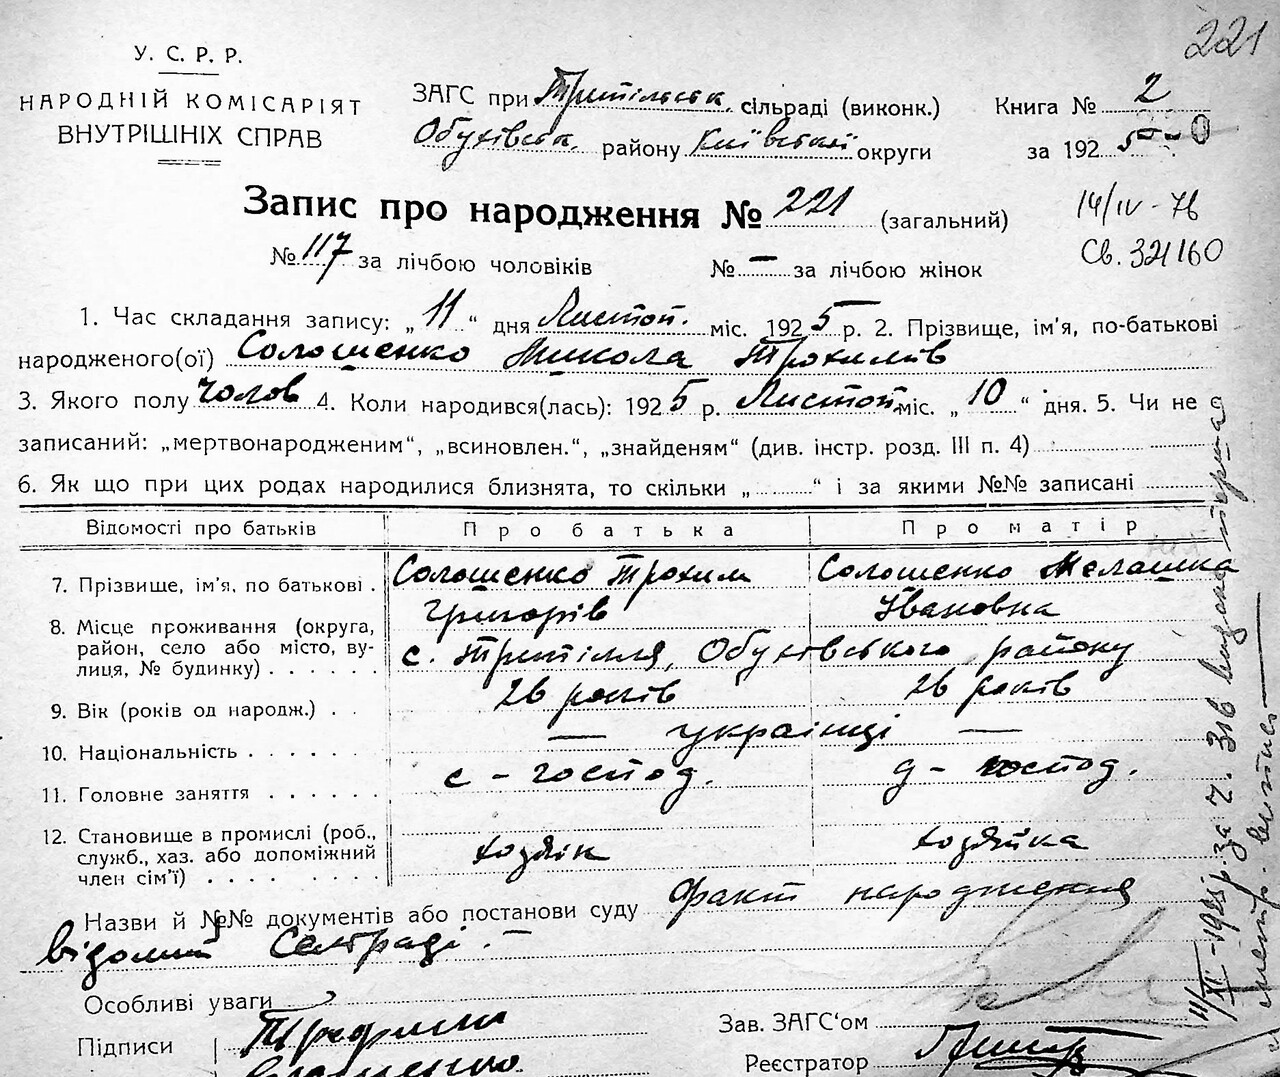 221
У. С. Р. Р.
НАРОДНІЙ КОМІСАРІЯТ
ВНУТРІШНІХ СПРАВ
ЗАГС при Трипільськ. сільраді (виконк.)
Обухівськ. району Київської округи
Книга № 2
за 192 5
Запис про народження № 221 (загальний)
14/IV - 76
Св. 321160
№ 117 за лічбою чоловіків № — за лічбою жінок
1. Час складання запису: „ 11 “ дня Листоп. міс. 192 5 р. 2. Прізвище, ім'я, по-батькові
народженого(ої) Солошенко Микола Трохимів
3. Якого полу чолов 4. Коли народився(лась): 192 5 р. Листоп міс. „ 10 “ дня. 5. Чи не є
записаний: „мертвонародженим“, „всиновлен.“, „знайденям“ (див. інстр. розд. III п. 4)
6. Як що при цих родах народилися близнята, то скільки „ “ і за якими №№ записані
Відомості про батьків Про батька Про матір
7. Прізвище, ім'я, по батькові . Солошенко Трохим Григорів Солошенко Мелашка Івановна
8. Місце проживання (округа,
район, село або місто, ву-
лиця, № будинку) . . . . . . с. Трипілля, Обухівського району
9. Вік (років од народж.) . . 26 років 26 років
10. Національність . . . . . . — українці —
11. Головне заняття . . . . . . с - господ. д - господ.
12. Становище в промислі (роб.,
служб., хаз. або допоміжний
член сім'ї) . . . . . . . . хозяїн хозяйка
Назви й №№ документів або постанови суду факт народження
відомий Сельраді. —
Особливі уваги
Підписи
Зав. ЗАГС'ом
Реєстратор